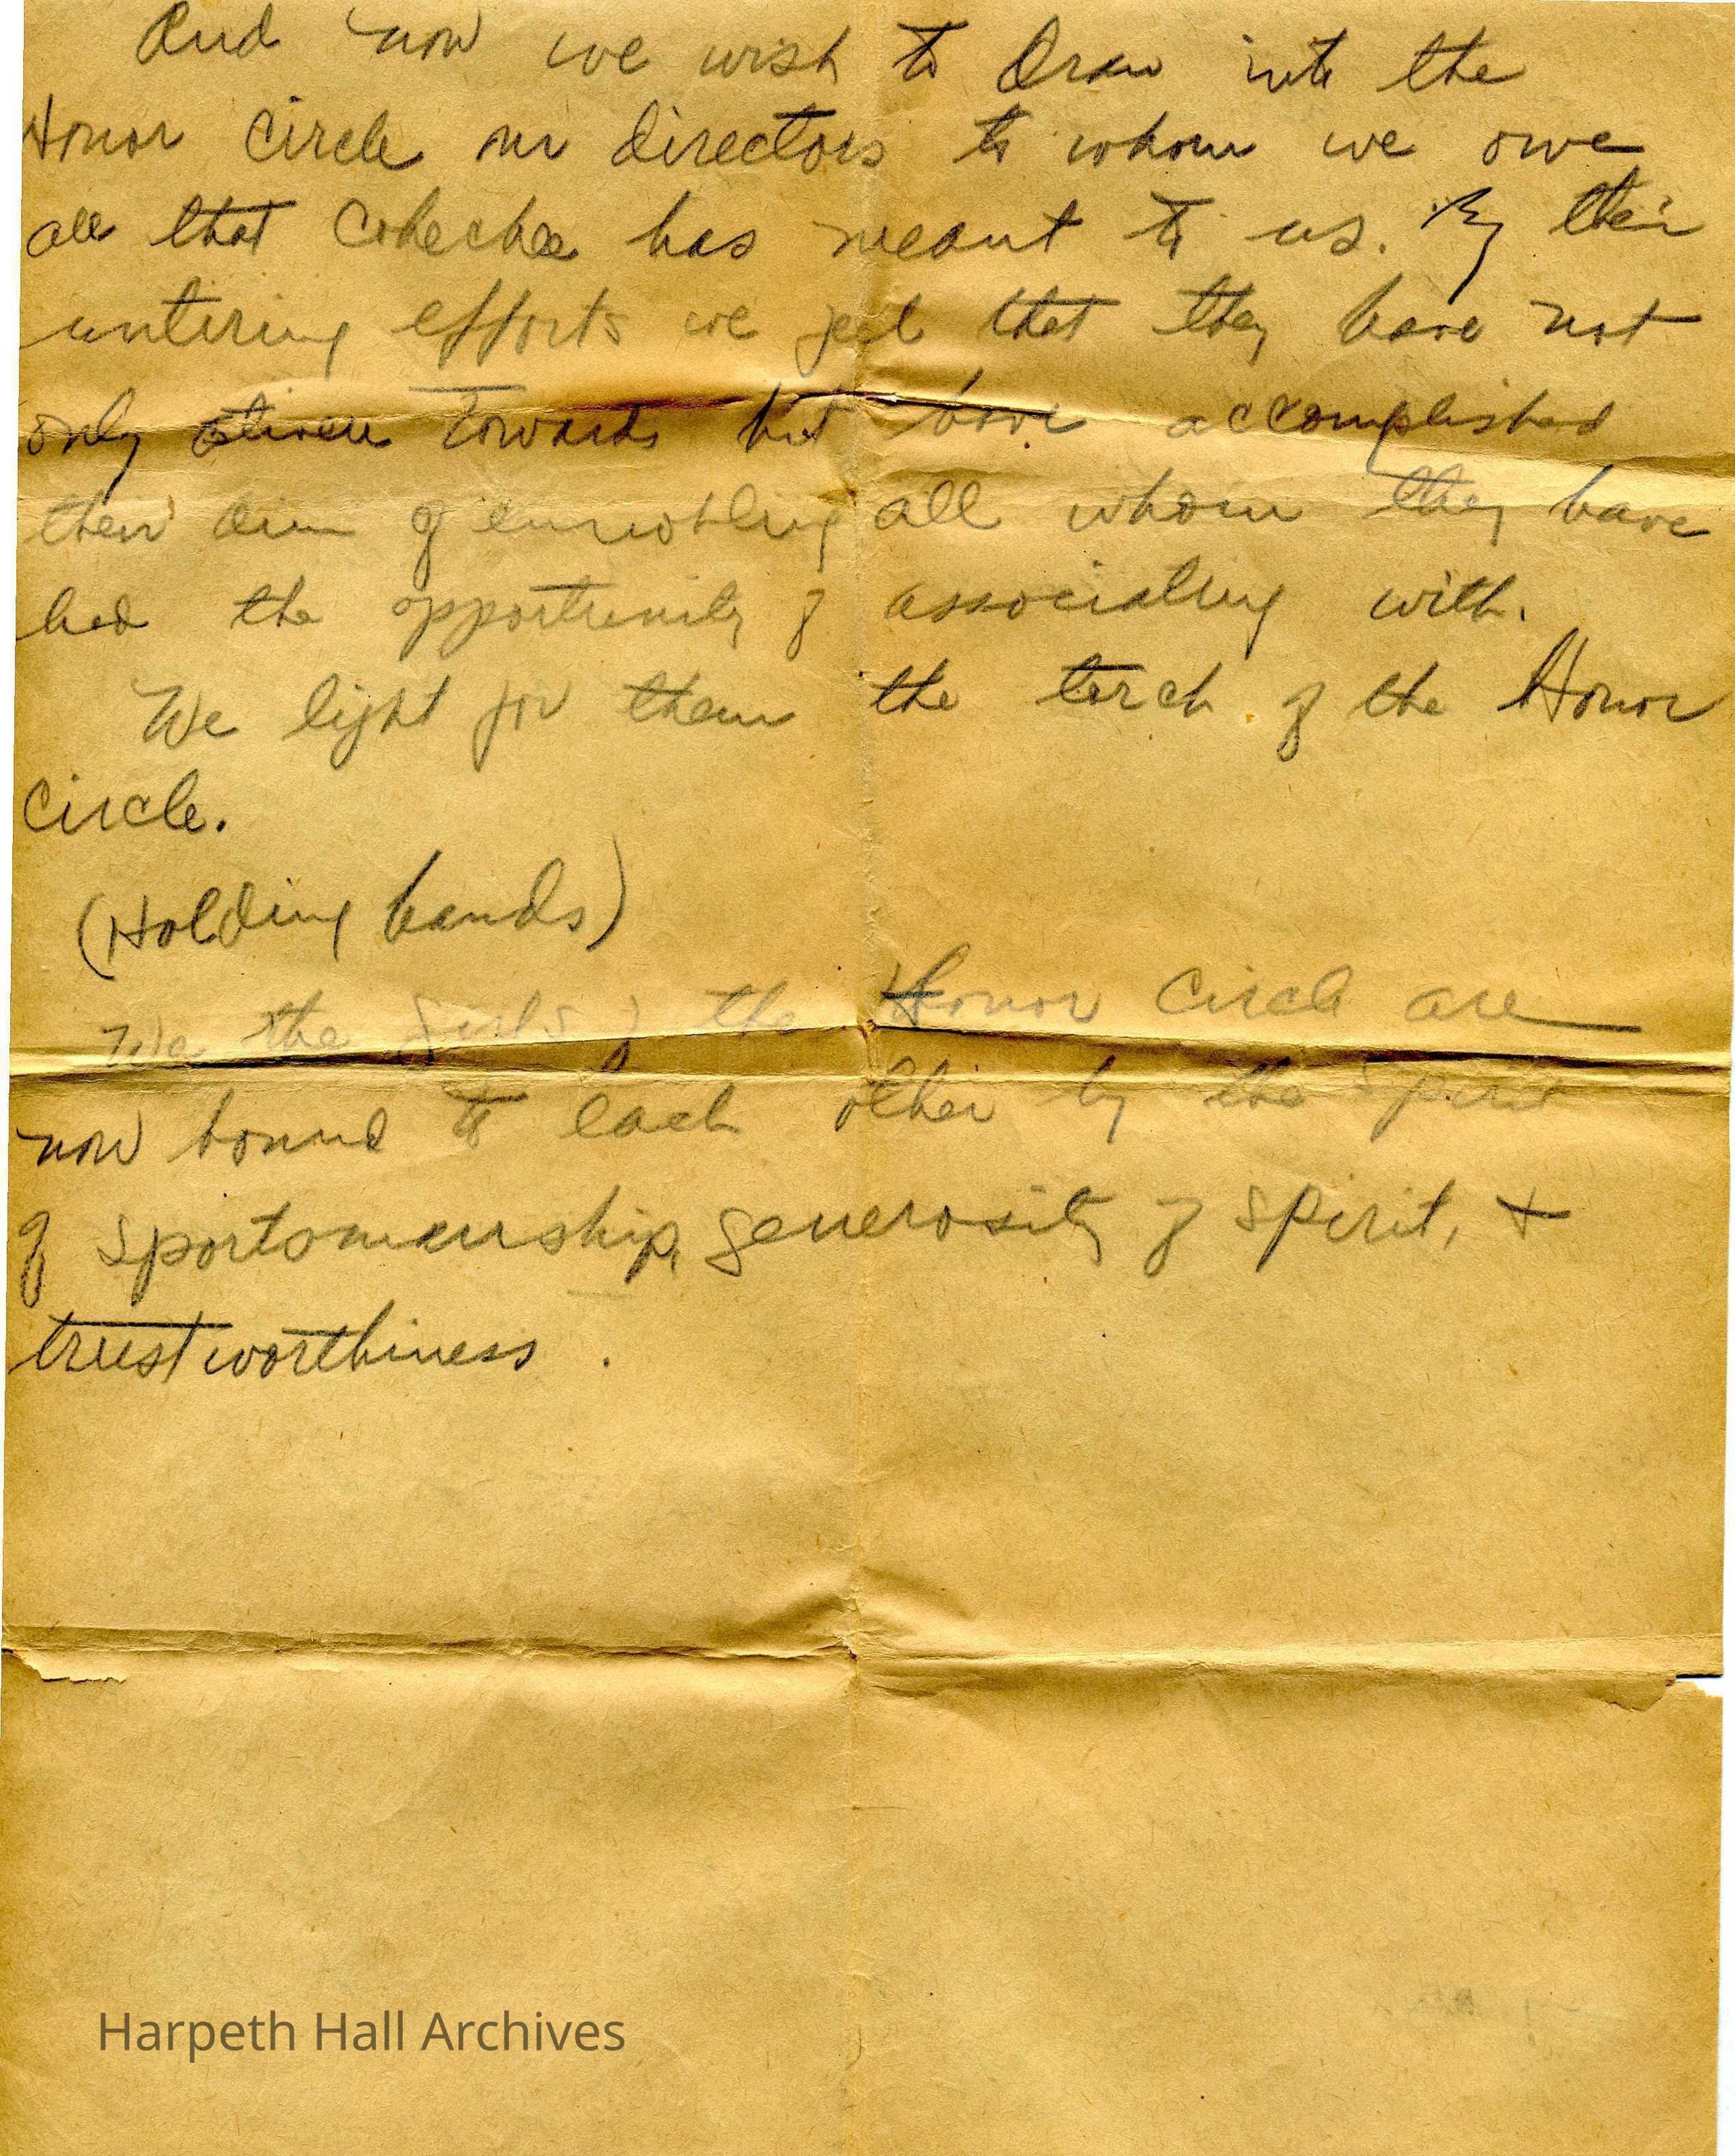 And now we wish to draw into the
Honor Circle our directors to whom we owe
all that Cohechee has meant to us. By their
untiring efforts we feel that they have not
only striven towards but have accomplished
their aim of ennobling all whom they have
had the opportunity of associating with.
We light for them the torch of the Honor
Circle.
(Holding hands)
We the girls of the Honor Circle are
now bound to each other by the spirit
of sportsmanship, generosity of spirit, +
trustworthiness.
Harpeth Hall Archives